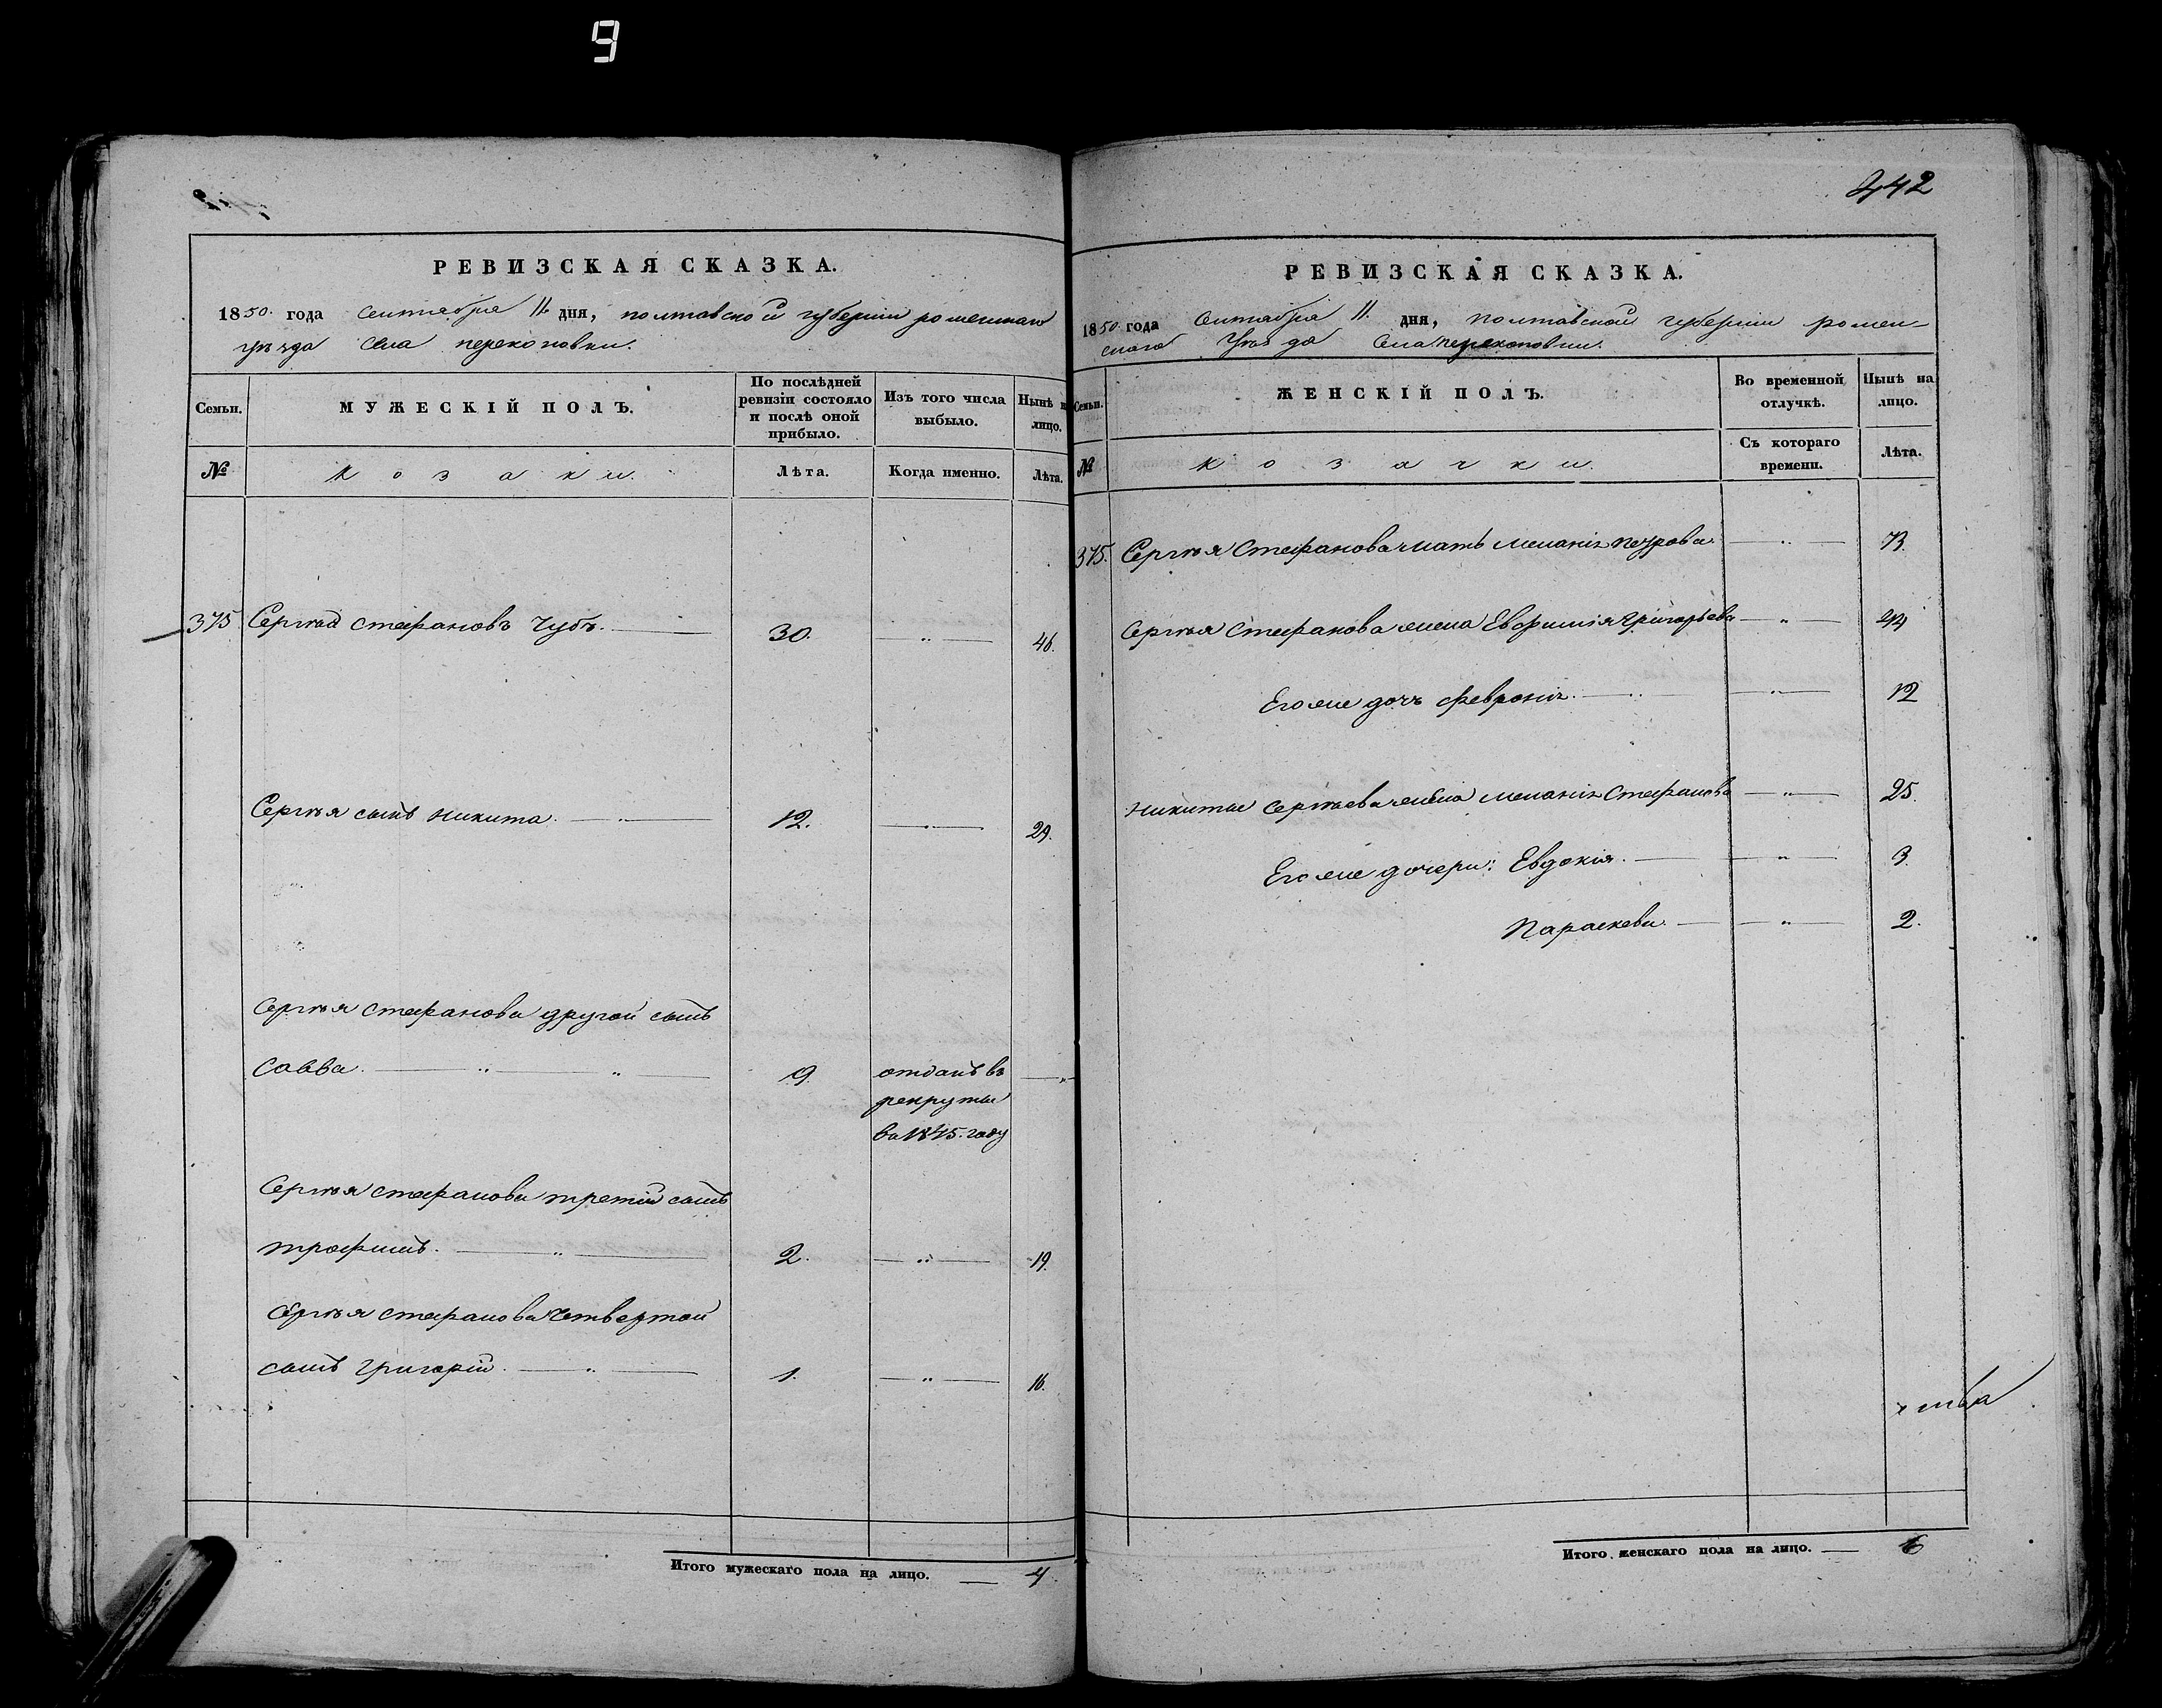 9
442
РЕВИЗСКАЯ СКАЗКА.
1850. года Сентября 11. дня, Полтавской губернии роменскаго
уѣзда села перекоповки.
Семьи.
МУЖЕСКІЙ ПОЛЪ.
По послѣдней ревизіи состояло и послѣ оной прибыло.
Изъ того числа выбыло.
Нынѣ на лицо.
№
козаки.
Лѣта.
Когда именно.
Лѣта.
375 Сергѣй Стефановъ Чубъ. 30. 46.
Сергѣя сынъ Никита. 12. 29.
Сергѣя Стефанова другой сынъ
Савва. 9. отданъ въ
рекруты
въ 1845. году
Сергѣя Стефанова третій сынъ
трофимъ. 2. 19.
Сергѣя Стефанова четвертой
сынъ Григорій. 1. 16.
Итого мужескаго пола на лицо. 4.
РЕВИЗСКАЯ СКАЗКА.
1850 года Сентября 11. дня, Полтавской губерніи ромен-
скаго Уѣзда Села перекоповки.
Семьи.
ЖЕНСКІЙ ПОЛЪ.
Во временной отлучкѣ.
Нынѣ на лицо.
№
козачки.
Съ котораго времени.
Лѣта.
375. Сергѣя Стефанова мать Меланія Петрова. 73.
Сергѣя Стефанова жена Евфимія Григорьева 44
Его же дочь Февронія. 12
Никиты Сергѣева жена Меланія Стефанова 25.
Его же дочери: Евдокія. 3.
Параскева. 2.
Итого женскаго пола на лицо. 6